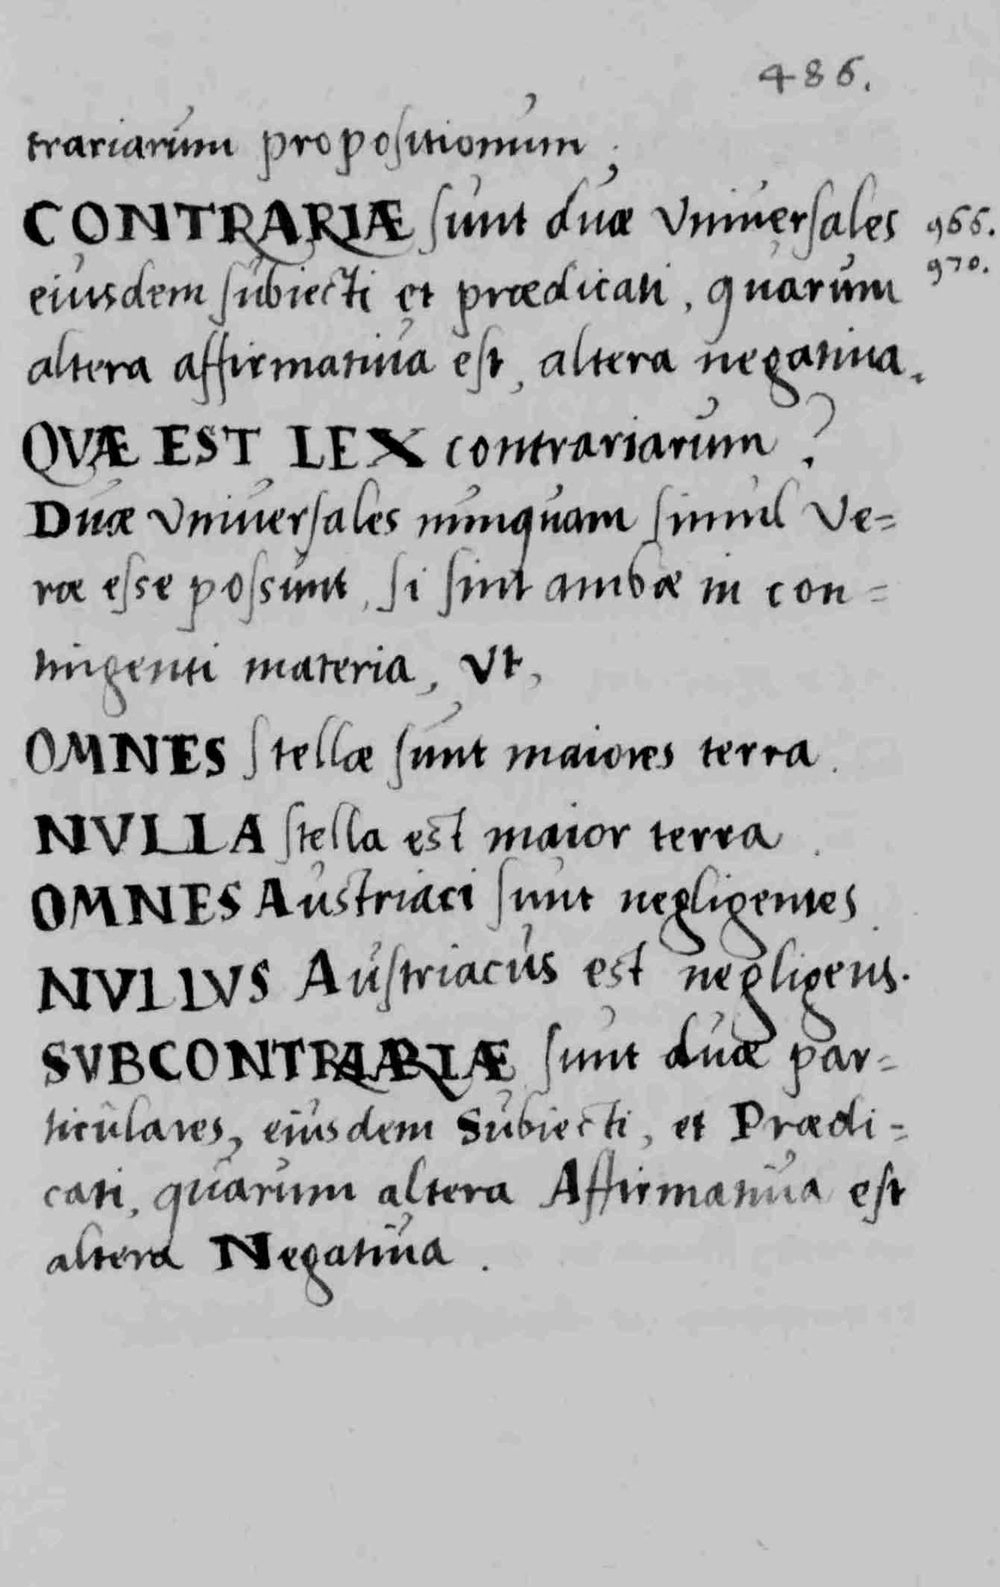 486.
trariarum propositionum.
CONTRARIÆ sunt duæ Vniuersales 966.
eiusdem subiecti et prædicati, quarum 970.
altera affirmatiua est, altera negatiua.
QVÆ EST LEX contrariarum?
Duæ Vniuersales nunquam simul Ve=
ræ esse possunt, si sint ambæ in con=
tingenti materia, Vt,
OMNES stellæ sunt maiores terra.
NVLLA stella est maior terra.
OMNES Austriaci sunt negligentes.
NVLLVS Austriacus est negligens.
SVBCONTRARIÆ sunt duæ par=
ticulares, eiusdem Subiecti, et Prædi=
cati, quarum altera Affirmatiua est
altera Negatiua.